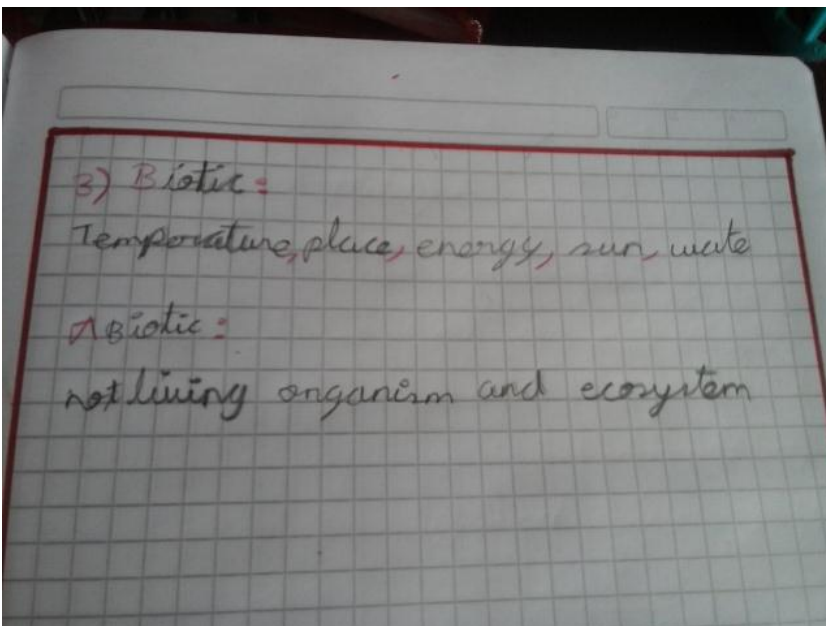 3) Biotic:
Temperature, place, energy, sun, wate
ABiotic:
not living organism and ecosystem